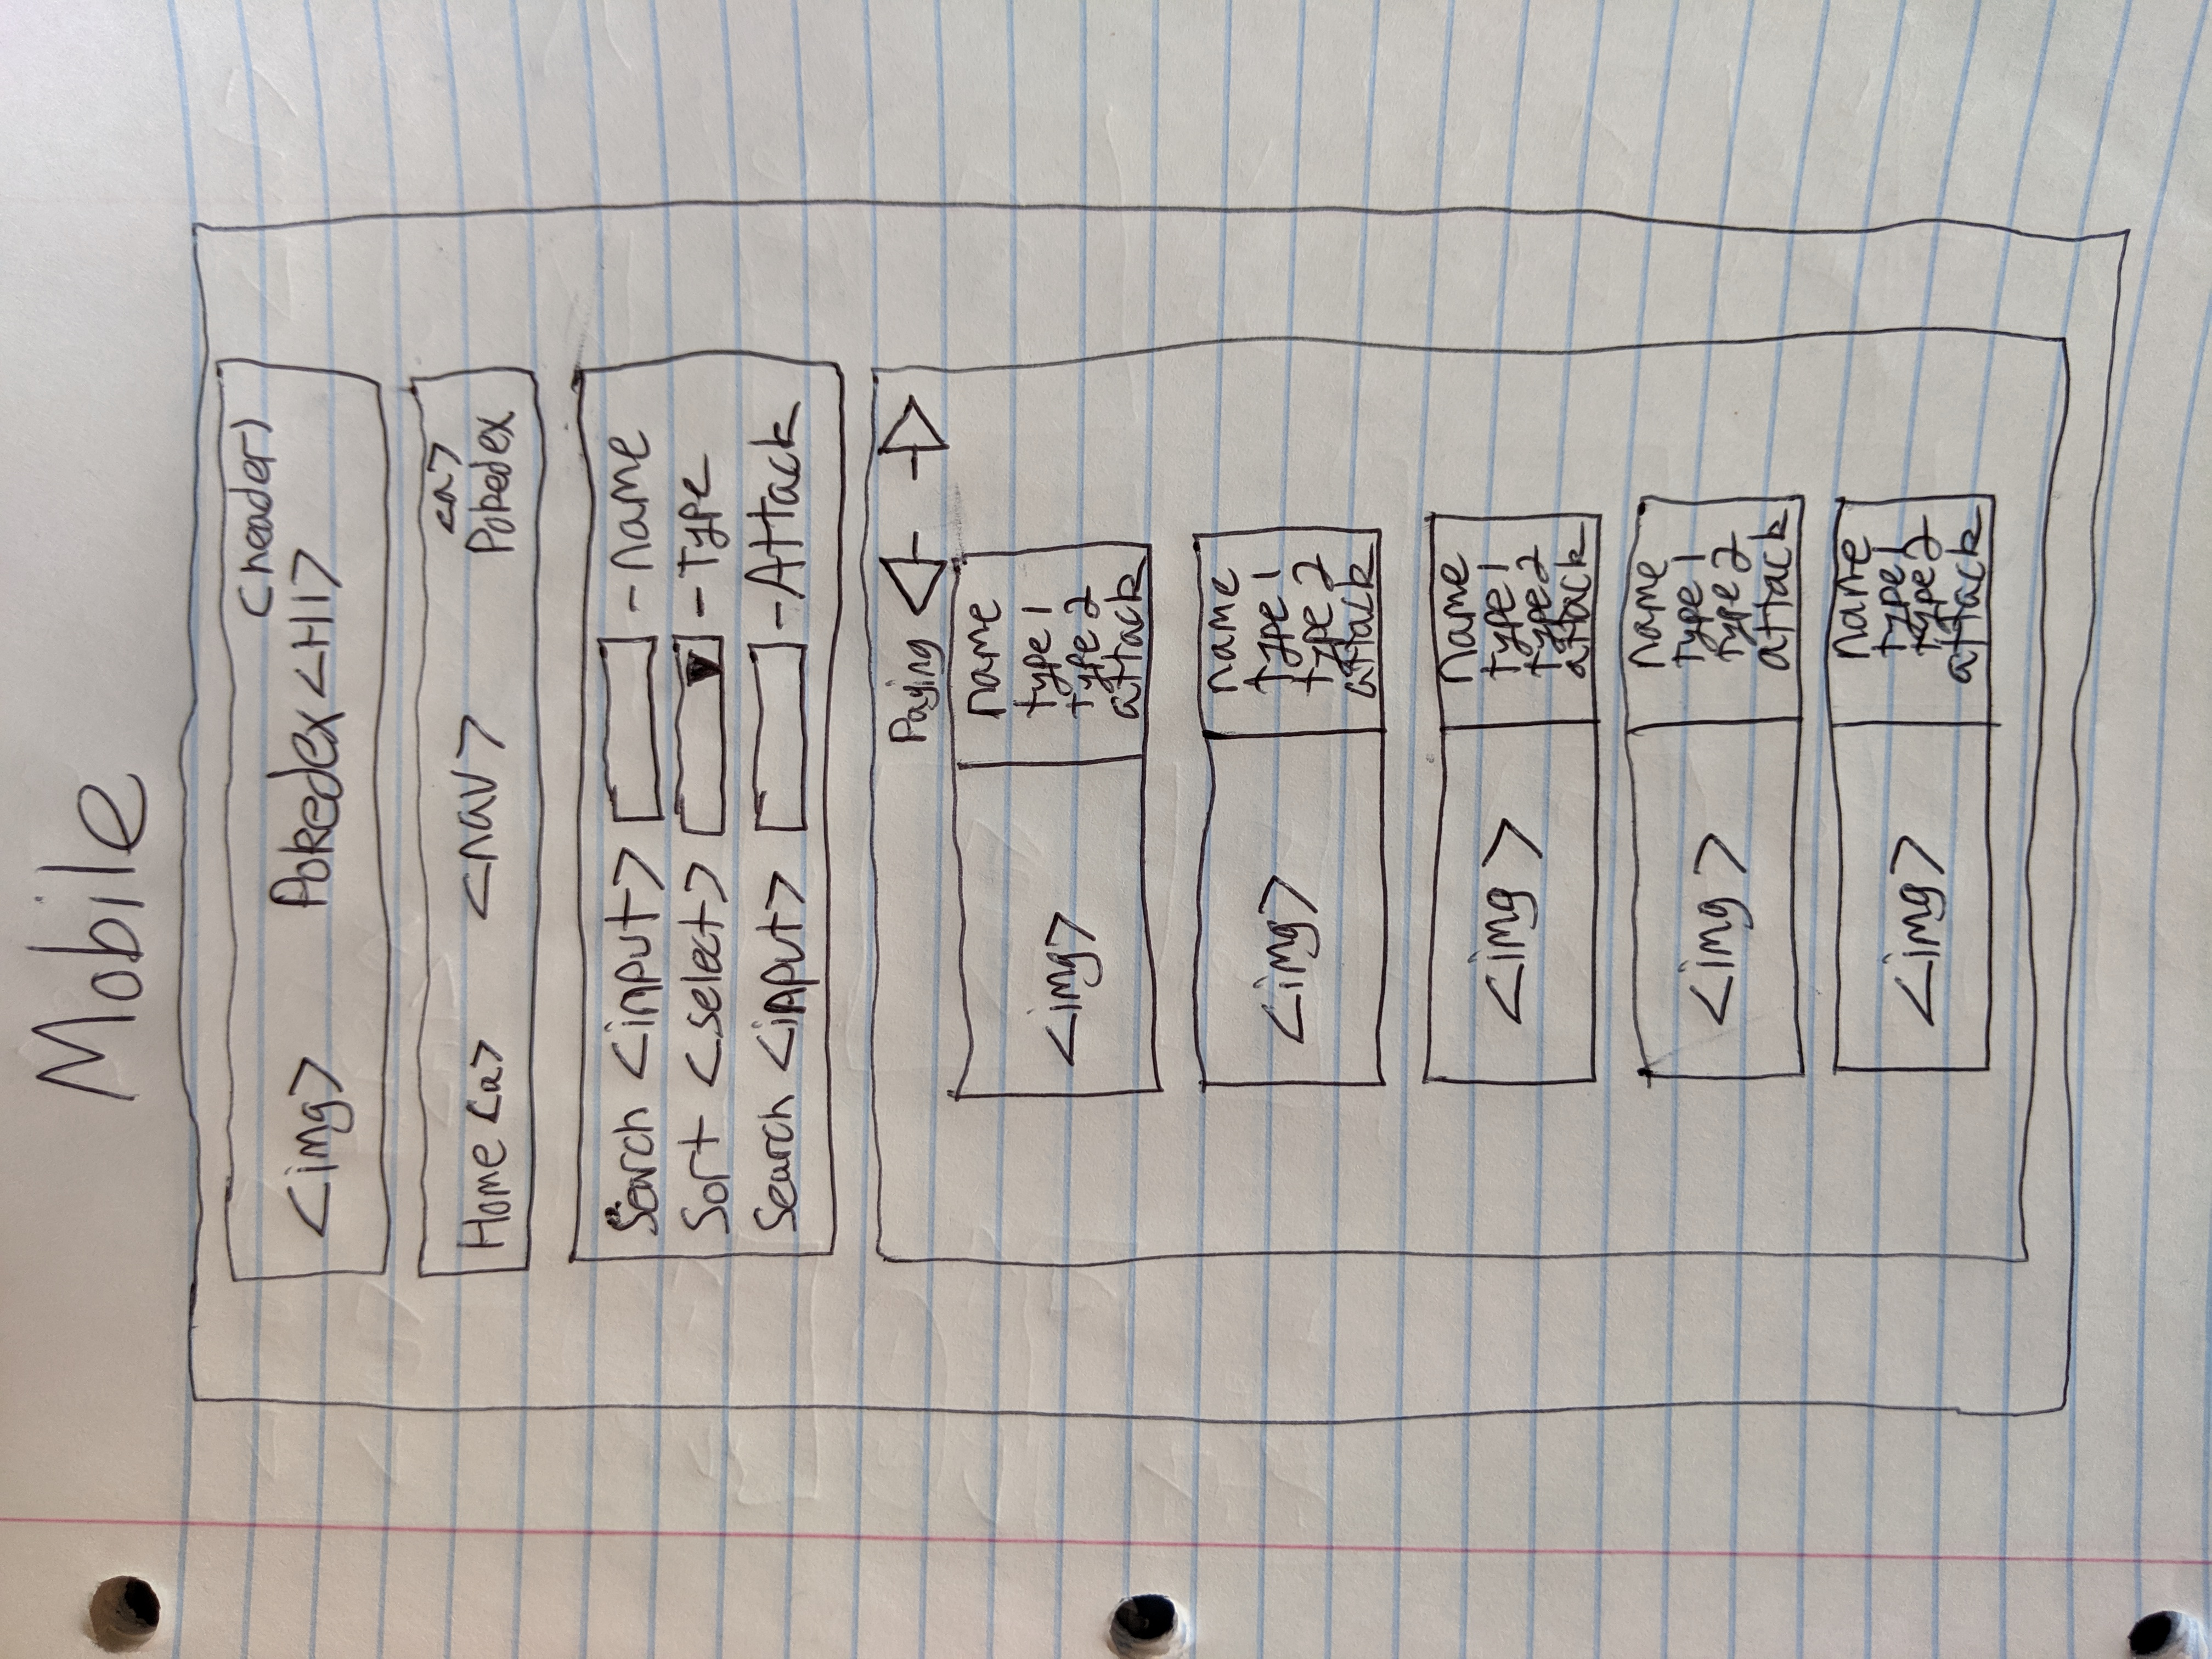 Mobile
(header)
<img> Pokedex <H1>
<a>
Home <a> <nav> Pokedex
Search <input> - name
Sort <select> - Type
Search <input> - Attack
Paging
name
type 1
<img>
type 2
attack
name
type 1
<img>
type 2
attack
name
type 1
<img>
type 2
attack
name
type 1
<img>
type 2
attack
name
type 1
<img>
type 2
attack